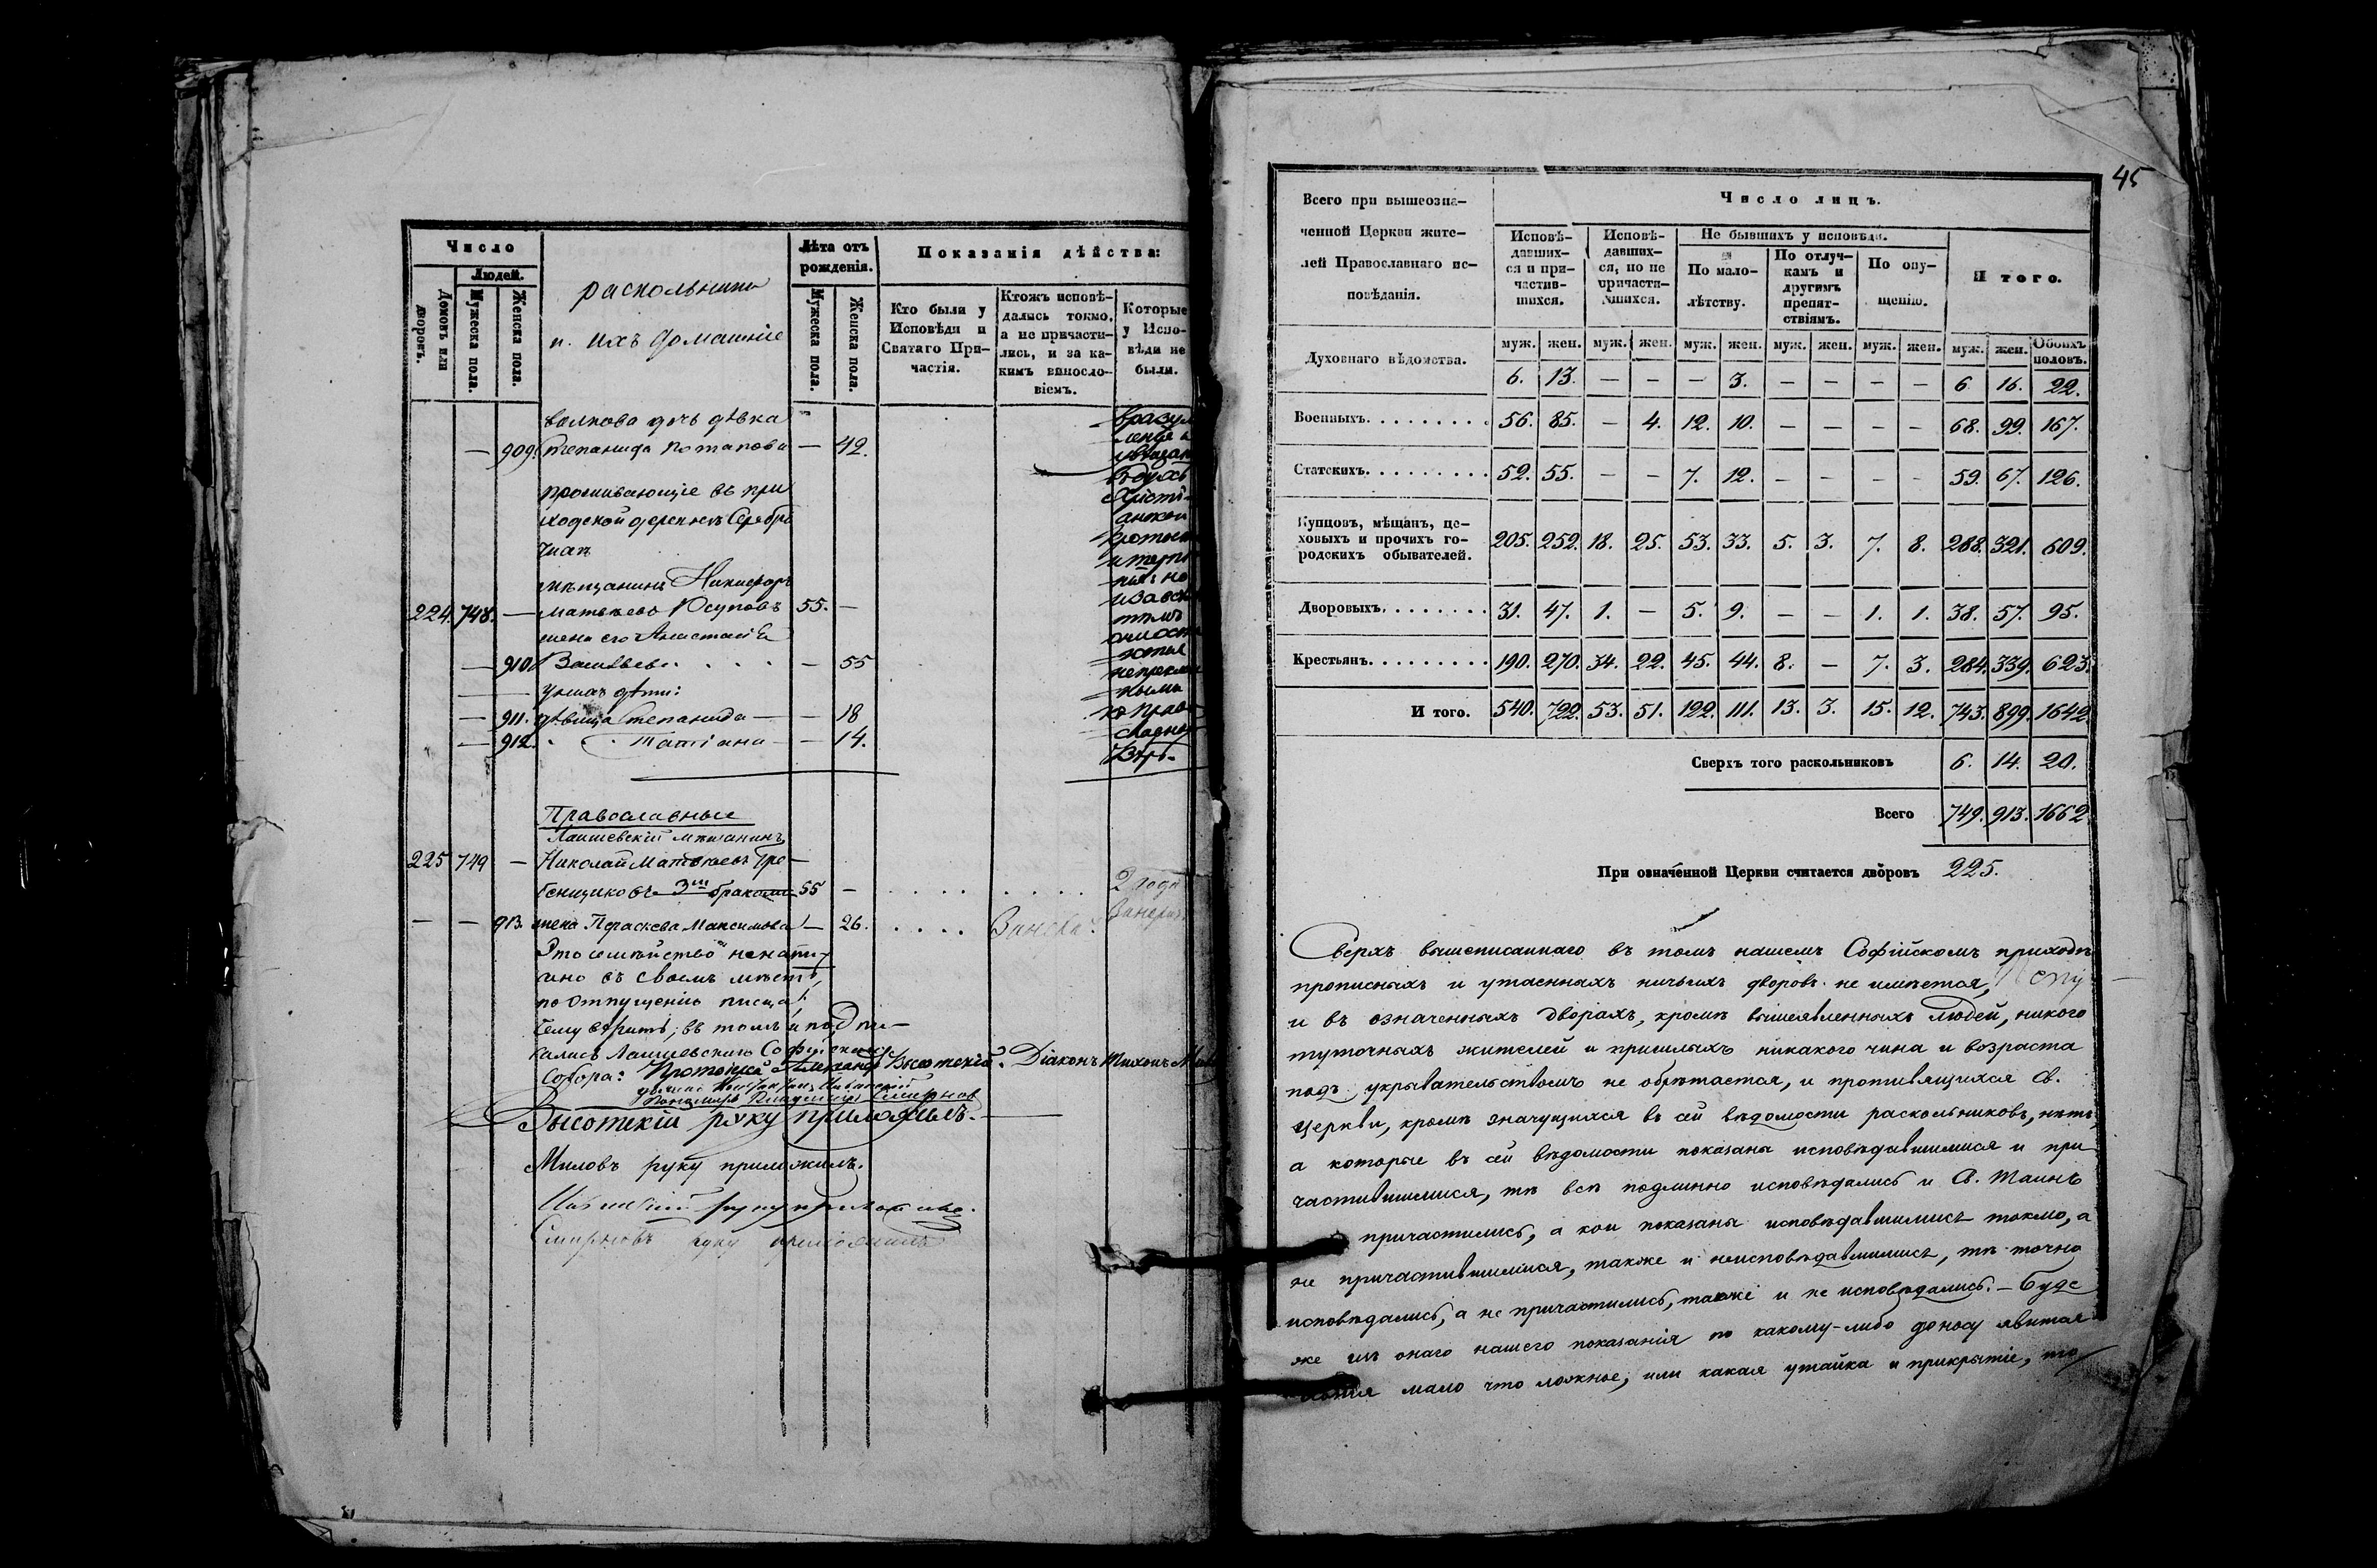 Число
Людей.
Домовъ или дворовъ.
Мужеска пола.
Женска пола.
раскольники
и ихъ домашніе
Лѣта отъ рожденія.
Мужеска пола.
Женска пола.
Показанія дѣйства:
Кто были у Исповѣди и Святаго Причастія.
Ктожъ исповѣдались токмо, а не причастились, и за какимъ винословіемъ.
Которые у Исповѣди не были.
дочь дѣвка
— 909. Степанида Потапова — 42.
проживающіе въ при
ходской деревнѣ
мѣщанинъ Никифоръ
224. 748. — Матвѣевъ Юсуповъ 55. —
жена его Анастасія
— 910. Васильева — 55
у нихъ дѣти:
— 911. дѣвица Степанида — — 18
— 912. Татіана — — 14.
Православные
Лаишевскій мѣщанинъ
225 749 — Николай Матвѣевъ Гре-
бенщиковъ 3мъ бракомъ 55 —
— — 913. жена Параскева Максимова — 26.
2 года
Это семейство не напи-
сано въ своемъ мѣстѣ,
по отпущенію писца:
чему вѣрить; въ томъ и подпи-
кались Лаишевскаго Софійскаго
Собора: Протоіерей Александръ Высотскій. Діаконъ Тихонъ
Пономарь Владиміръ Смирнов
Высотскій руку приложилъ.
Миловъ руку приложилъ.
руку приложилъ.
Смирновъ руку приложилъ
45
Всего при вышеозна-
ченной Церкви жите-
лей Православнаго ис-
повѣданія.
Число лицъ.
Исповѣ-
давших-
ся и при-
частив-
шихся.
Исповѣ-
давших-
ся, но не
причасти-
вшихся.
Не бывшихъ у исповѣди.
По мало-
лѣтству.
По отлуч-
камъ и
другимъ
препят-
ствіямъ.
По опу-
щенію.
И того.
муж. жен. муж. жен. муж. жен. муж. жен. муж. жен. муж. жен. Обоихъ половъ.
Духовнаго вѣдомства. 6. 13. — — — 3. — — — — 6. 16. 22.
Военныхъ. 56. 85. — 4. 12. 10. — — — — 68. 99. 167.
Статскихъ. 52. 55. — — 7. 12. — — — — 59. 67. 126.
Купцовъ, мѣщанъ, це-
ховыхъ и прочихъ го-
родскихъ обывателей. 205. 252. 18. 25. 53. 33. 5. 3. 7. 8. 288. 321. 609.
Дворовыхъ. 31. 47. 1. — 5. 9. — — 1. 1. 38. 57. 95.
Крестьянъ. 190. 270. 34. 22. 45. 44. 8. — 7. 3. 284. 339. 623.
И того. 540. 722. 53. 51. 122. 111. 13. 3. 15. 12. 743. 899. 1642.
Сверхъ того раскольниковъ 6. 14. 20.
Всего 749. 913. 1662.
При означенной Церкви считается дворовъ 225.
Сверхъ вышеписаннаго въ томъ нашемъ Софійскомъ приходѣ
прописныхъ и утаенныхъ ничьихъ дворовъ не имѣется,
и въ означенныхъ дворахъ, кромѣ вышеявленныхъ людей, никого
туточныхъ жителей и пришлыхъ никакого чина и возраста
подъ укрывательствомъ не обрѣтается, и противящихся Св.
Церкви, кромѣ значущихся въ сей вѣдомости раскольниковъ, нѣтъ;
а которые въ сей вѣдомости показаны исповѣдавшимися и при
частившимися, тѣ всѣ подлинно исповѣдались и Св. Таинъ
причастились, а кои показаны исповѣдавшимись токмо, а
не причастившимися, также и неисповѣдавшимись, тѣ точно
исповѣдались, а не причастились, также и не исповѣдались. – Буде
же изъ онаго нашего показанія по какому-либо доносу явится
хотя мало что ложное, или какая утайка и прикрытіе, то